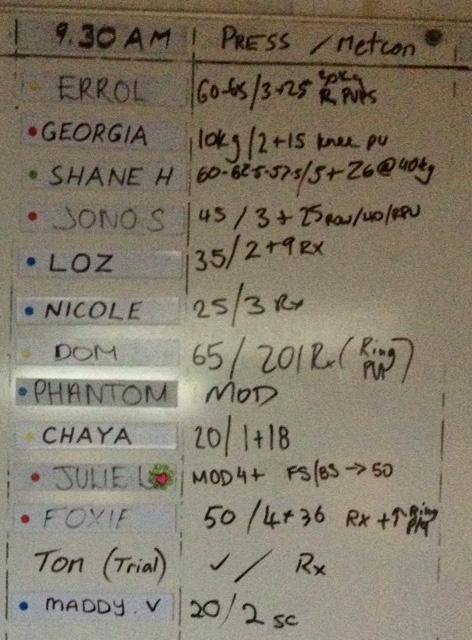 9.30 AM PRESS / Metcon
ERROL 60-65/3+25 40kg R PUPS
GEORGIA 10kg/2+15 knee PU
SHANE H 60-62.5-57.5/5+26@40kg
JONO S 45/3+25 row/40/RPU
LOZ 35/2+9 Rx
NICOLE 25/3 Rx
DOM 65/201Rx(Ring PU)
PHANTOM MOD
CHAYA 20/1+18
JULIE L MOD4+ FS/BS→50
FOXIE 50/4+36 Rx+↑Ring
Tom (Trial) ✓/ Rx
MADDY.V 20/2 SC